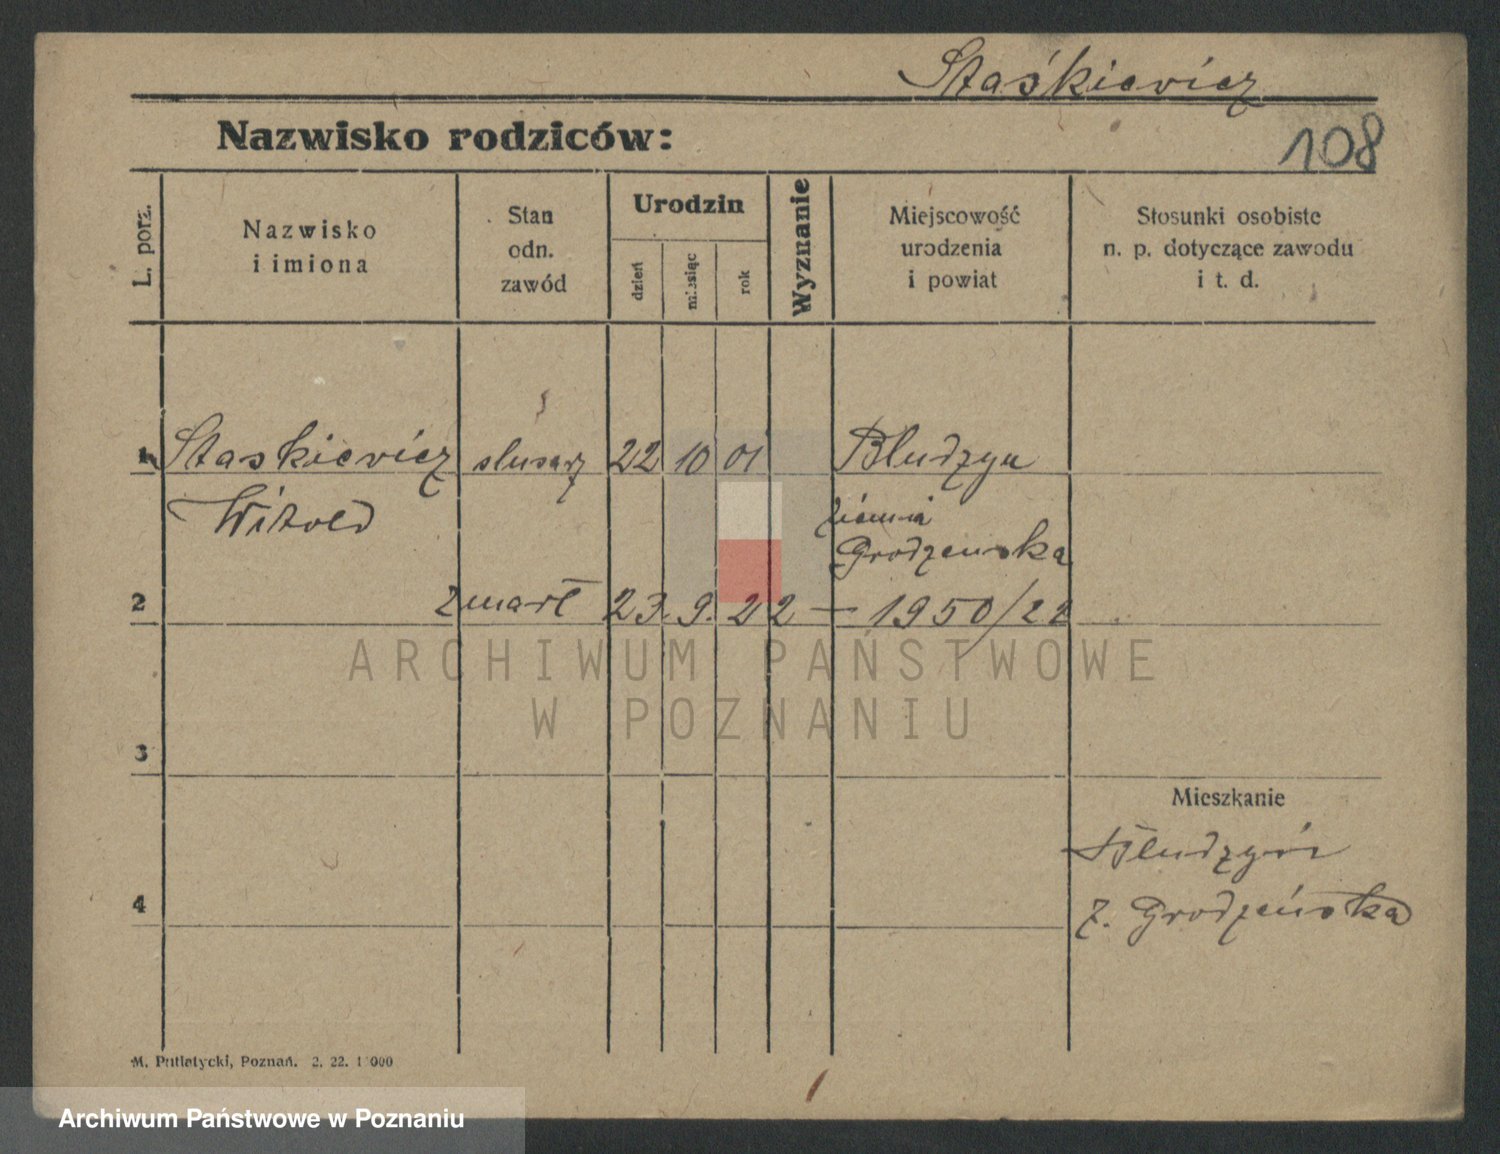 Staśkiewicz
Nazwisko rodziców:
108
L. porz.
Nazwisko
i imiona
Stan
odn.
zawód
Urodzin
dzień
miesiąc
rok
Wyznanie
Miejscowość
urodzenia
i powiat
Stosunki osobiste
n. p. dotyczące zawodu
i t. d.
1 Staskiewicz slusarz 22 10 01 Bludzyn
Witold ziemia
Grodzenska
2 zmarł 23. 9. 22 — 1950/22
ARCHIWUM PAŃSTWOWE
W POZNANIU
3
Mieszkanie
Bludzyń
4 z. Grodzeńska
M. Putiatycki, Poznań. 2. 22. 1 000
Archiwum Państwowe w Poznaniu